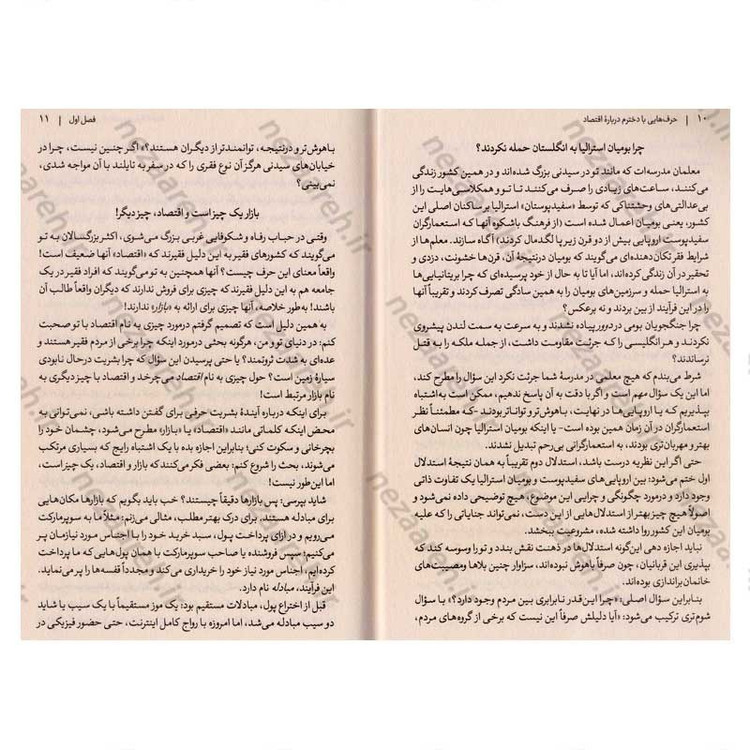 ۱۰ | حرف‌هایی با دخترم دربارهٔ اقتصاد
چرا بومیان استرالیا به انگلستان حمله نکردند؟
معلمان مدرسه‌ات که مانند تو در سیدنی بزرگ شده‌اند و در همین کشور زندگی
می‌کنند، ساعت‌های زیادی را صرف می‌کنند تا تو و همکلاسی‌هایت را از
بی‌عدالتی‌های وحشتناکی که توسط «سفیدپوستان» استرالیا بر ساکنان اصلی این
کشور، یعنی بومیان اعمال شده است (از فرهنگ باشکوه آنها که استعمارگران
سفیدپوست اروپایی بیش از دو قرن زیر پا لگدمال کردند) آگاه سازند. معلم‌ها از
شرایط فقر تکان‌دهنده‌ای می‌گویند که بومیان درنتیجهٔ آن، قرن‌ها خشونت، دزدی و
تحقیر در آن زندگی کرده‌اند، اما آیا تا به حال از خود پرسیده‌ای که چرا بریتانیایی‌ها
به استرالیا حمله و سرزمین‌های بومیان را به همین سادگی تصرف کردند و تقریباً آنها
را در این فرآیند از بین بردند و نه برعکس؟
چرا جنگجویان بومی در دوور پیاده نشدند و به سرعت به سمت لندن پیشروی
نکردند و هر انگلیسی را که جرئت مقاومت داشت، از جمله ملکه را به قتل
نرساندند؟
شرط می‌بندم که هیچ معلمی در مدرسهٔ شما جرئت نکرد این سؤال را مطرح کند،
اما این یک سؤال مهم است و اگر با دقت به آن پاسخ ندهیم، ممکن است به‌اشتباه
بپذیریم که یا اروپایی‌ها در نهایت، باهوش‌تر و تواناتر بودند -که مطمئناً نظر
استعمارگران در آن زمان همین بوده است- یا اینکه بومیان استرالیا چون انسان‌های
بهتر و مهربان‌تری بودند، به استعمارگرانی بی‌رحم تبدیل نشدند.
حتی اگر این نظریه درست باشد، استدلال دوم تقریباً به همان نتیجهٔ استدلال
اول ختم می‌شود: بین اروپایی‌های سفیدپوست و بومیان استرالیا یک تفاوت ذاتی
وجود دارد و درمورد چگونگی و چرایی این موضوع، هیچ توضیحی داده نمی‌شود و
اصولاً هیچ چیز بهتر از استدلال‌هایی از این دست، نمی‌تواند جنایاتی را که علیه
بومیان این کشور روا داشته شده، مشروعیت ببخشد.
نباید اجازه دهی این‌گونه استدلال‌ها در ذهنت نقش بندد و تو را وسوسه کند که
بپذیری این قربانیان، چون صرفاً باهوش نبوده‌اند، سزاوار چنین بلاها و مصیبت‌های
خانمان‌براندازی بوده‌اند.
بنابراین سؤال اصلی: «چرا این‌قدر نابرابری بین مردم وجود دارد؟» با سؤال
شوم‌تری ترکیب می‌شود: «آیا دلیلش صرفاً این نیست که برخی از گروه‌های مردم،
فصل اول | ۱۱
باهوش‌تر و درنتیجه، توانمندتر از دیگران هستند؟» اگر چنین نیست، چرا در
خیابان‌های سیدنی هرگز آن نوع فقری را که در سفر به تایلند با آن مواجه شدی،
نمی‌بینی؟
بازار یک چیز است و اقتصاد، چیز دیگر!
وقتی در حباب رفاه و شکوفایی غربی بزرگ می‌شوی، اکثر بزرگسالان به تو
می‌گویند که کشورهای فقیر به این دلیل فقیرند که «اقتصاد» آنها ضعیف است!
واقعاً معنای این حرف چیست؟ آنها همچنین به تو می‌گویند که افراد فقیر در یک
جامعه هم به این دلیل فقیرند که چیزی برای فروش ندارند که دیگران واقعاً طالب آن
باشند! به‌طور خلاصه، آنها چیزی برای ارائه به «بازار» ندارند!
به همین دلیل است که تصمیم گرفتم درمورد چیزی به نام اقتصاد با تو صحبت
کنم: در دنیای تو و من، هرگونه بحثی درمورد اینکه چرا برخی از مردم فقیر هستند و
عده‌ای به شدت ثروتمند؟ یا حتی پرسیدن این سؤال که چرا بشریت درحال نابودی
سیارهٔ زمین است؟ حول چیزی به نام اقتصاد می‌چرخد و اقتصاد با چیز دیگری به
نام بازار مرتبط است!
برای اینکه دربارهٔ آیندهٔ بشریت حرفی برای گفتن داشته باشی، نمی‌توانی به
محض اینکه کلماتی مانند «اقتصاد» یا «بازار» مطرح می‌شود، چشمان خود را
بچرخانی و سکوت کنی؛ بنابراین اجازه بده با یک اشتباه رایج که بسیاری مرتکب
می‌شوند، بحث را شروع کنم: بعضی فکر می‌کنند که بازار و اقتصاد، یک چیز است،
اما این‌طور نیست!
شاید بپرسی: پس بازارها دقیقاً چیستند؟ خب باید بگویم که بازارها مکان‌هایی
برای مبادله هستند. برای درک بهتر مطلب، مثالی می‌زنم: مثلاً ما به سوپرمارکت
می‌رویم و در ازای پرداخت پول، سبد خرید خود را با اجناس مورد نیازمان پر
می‌کنیم؛ سپس فروشنده یا صاحب سوپرمارکت با همان پول‌هایی که ما پرداخت
کرده‌ایم، اجناس مورد نیاز خود را خریداری می‌کند و مجدداً قفسه‌ها را پر می‌نماید.
این فرآیند، مبادله نام دارد.
قبل از اختراع پول، مبادلات مستقیم بود: یک موز مستقیماً با یک سیب یا شاید
دو سیب مبادله می‌شد، اما امروزه با رواج کامل اینترنت، حتی حضور فیزیکی در
nezaareh.ir